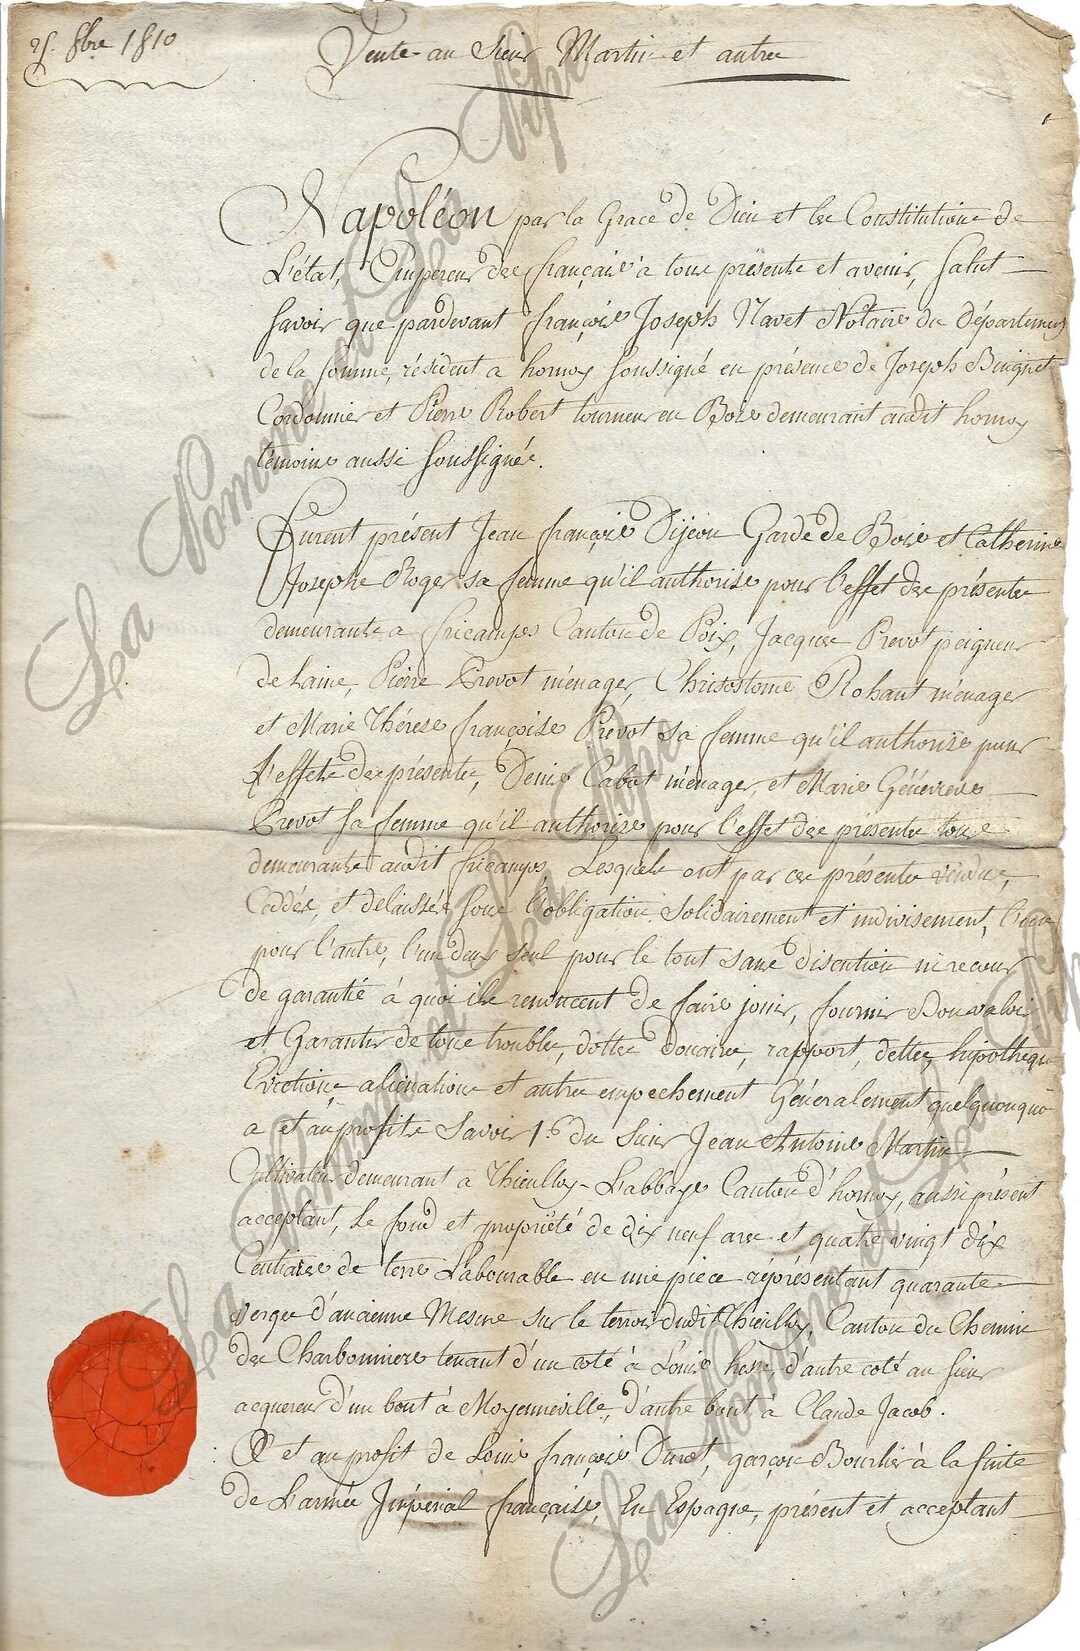 8bre 1810
Vente au Sieur Martin et autre
Napoléon par la Grace de Dieu et les Constitutions de
L'état, Empereur des français à tous présents et avenir, Salut
Savoir que pardevant françois Joseph Navet Notaire du Département
de la Somme, résident a hornoy Soussigné en présence de Joseph
Cordonnier et Pierre Robert tourneur en Bois demeurant audit hornoy
témoins aussi Soussignés.
Furent présent Jean françois Dijeon Garde de Bois et Catherine
Josephe Roger sa femme qu'il authorise pour l'effet des présentes
demeurants a fricamps Canton de Poix, Jacques Prevot peigneur
de Laine, Pierre Prevot ménager, Chrisostome Rohaut ménager
et Marie Thérese françoise Prévot sa femme qu'il authorise pour
L'effets des présentes, Denis Cabot ménager, et Marie Génévieve
Prevot sa femme qu'il authorise pour l'effet des présentes tous
demeurants audit fricamps, Lesquels ont par ces présentes vendus,
Cédés, et délaissés sous l'obligation solidairement et indivisement, l'un
pour l'autre, l'un deux seul pour le tout sans discution ni recours
de garantie à quoi ils renoncent de faire jouir, fournir
et Garantir de tous troubles, dottes douaires, rapport, dettes, hipotheque
Evictions, aliénations et autres empechement Généralement quelquonque
a et au profits Savoir 1.º du Sieur Jean Antoine Martin
Cultivateur demeurant a Thieulloy-L'abbaye Canton d'hornoy, aussi présent
acceptant, le fond et propriété de dix neuf ares et quatre vingt dix
Centiares de terre Labourable en une piece réprésentant quarante
verges d'ancienne Mesure sur le terroir dudit Thieulloy, Canton du Chemin
des Charbonniers tenant d'un coté à Louis d'autre coté au Sieur
acquereur d'un bout à Moyenneville, d'autre bout à Claude Jacob.
2.º et au profit de Louis françois Duret, garçon Bourlier à la suite
de L'armée Impérial française, En Espagne, présent et acceptant
La Pomme et La Nipe
La Pomme et La Nipe
La Pomme et La Nipe